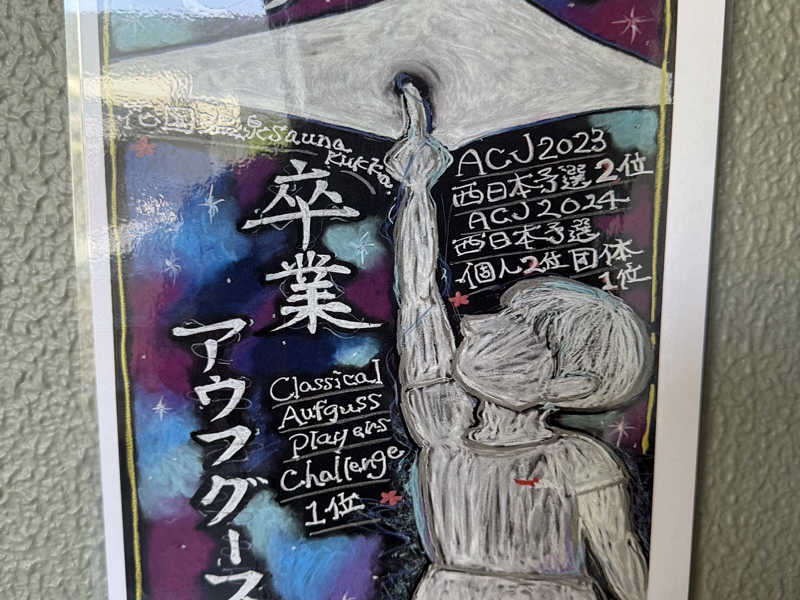 花園温泉sauna
Kukka
卒業
アウフグース
ACJ2023
西日本予選2位
ACJ2024
西日本予選
個人2位団体
1位
Classical
Aufguss
Players
Challenge
1位